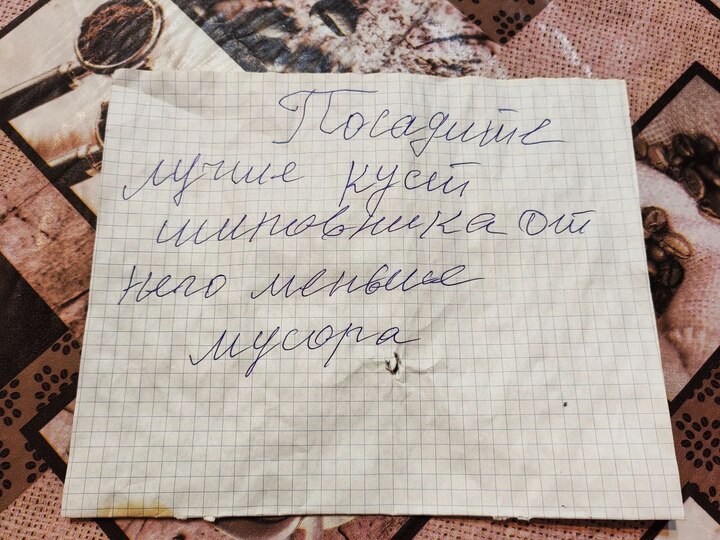 Посадите
лучше куст
шиповника от
него меньше
мусора